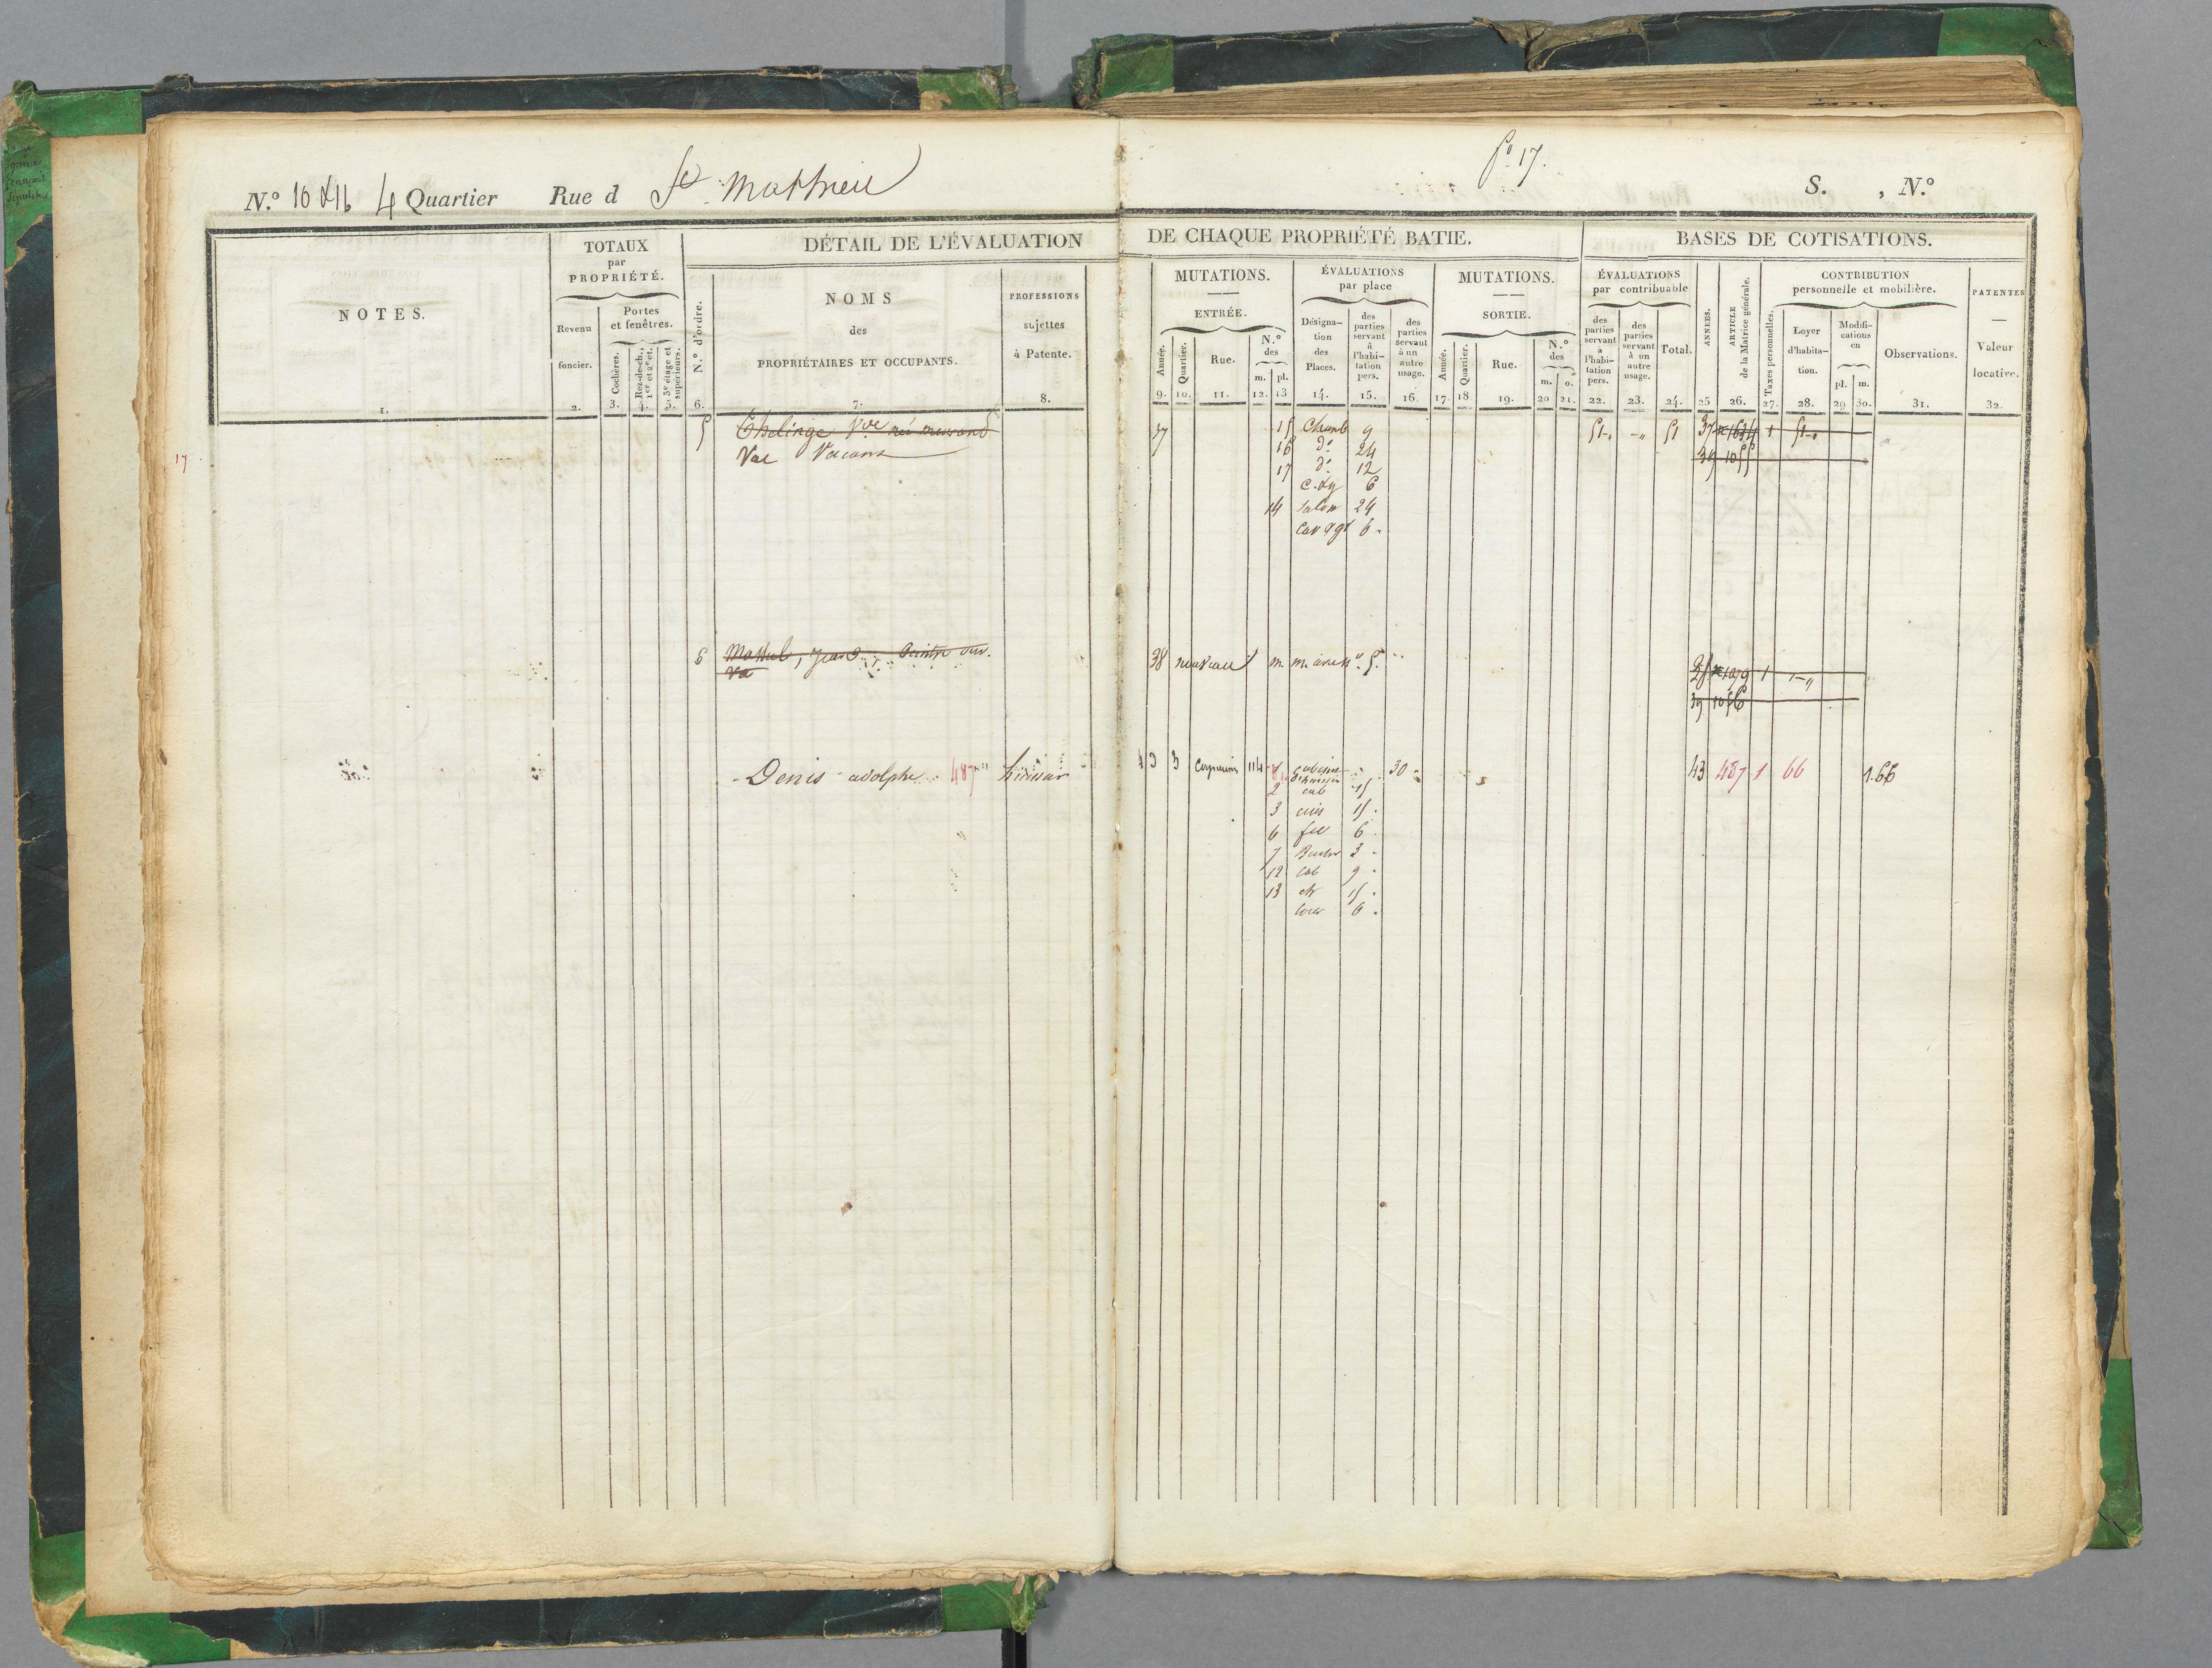 fo 17.
No. 10 & 16 4 Quartier Rue d St Mathieu
S. , No.
DÉTAIL DE L'ÉVALUATION DE CHAQUE PROPRIÉTÉ BATIE.
BASES DE COTISATIONS.
NOTES.
1.
TOTAUX
par
PROPRIÉTÉ.
Revenu
foncier.
2.
Portes
et fenêtres.
Cochères.
3.
Rez-de-ch.,
1er et 2e ét.
4.
3e étage et
supérieurs.
5.
N.o d'ordre.
6.
NOMS
des
PROPRIÉTAIRES ET OCCUPANTS.
7.
PROFESSIONS
sujettes
à Patente.
8.
MUTATIONS.
ENTRÉE.
Année.
9.
Quartier.
10.
Rue.
11.
N.o
des
m. pl.
12. 13
ÉVALUATIONS
par place
Désigna-
tion
des
Places.
14.
des
parties
servant
à
l'habi-
tation
pers.
15.
des
parties
servant
à un
autre
usage.
16
MUTATIONS.
SORTIE.
Année.
17.
Quartier.
18
Rue.
19.
N.o
des
m. o.
20 21.
ÉVALUATIONS
par contribuable
des
parties
servant
à
l'habi-
tation
pers.
22.
des
parties
servant
à un
autre
usage.
23.
Total.
24.
ANNÉES.
25
ARTICLE
de la Matrice générale.
26.
CONTRIBUTION
personnelle et mobilière.
Taxes personnelles.
27.
Loyer
d'habita-
tion.
28.
Modifi-
cations
en
pl. m.
29 30.
Observations.
31.
PATENTES
Valeur
locative.
32.
17
5 Thelinge Vve née 37 15 Chamb 9 51 51 37 1 51
Vacant 16 do 24 39 1055
17 do 12
6
14 Salon 24
6
6 Jean 38 nouveau 5 1
39 1056
Denis adolphe 487 43 3 114 30 43 487 1 66 1.66
2 cab 15
3 cuis 15
6 6
7 3
12 cab 9
13 ch 15
Cour 6